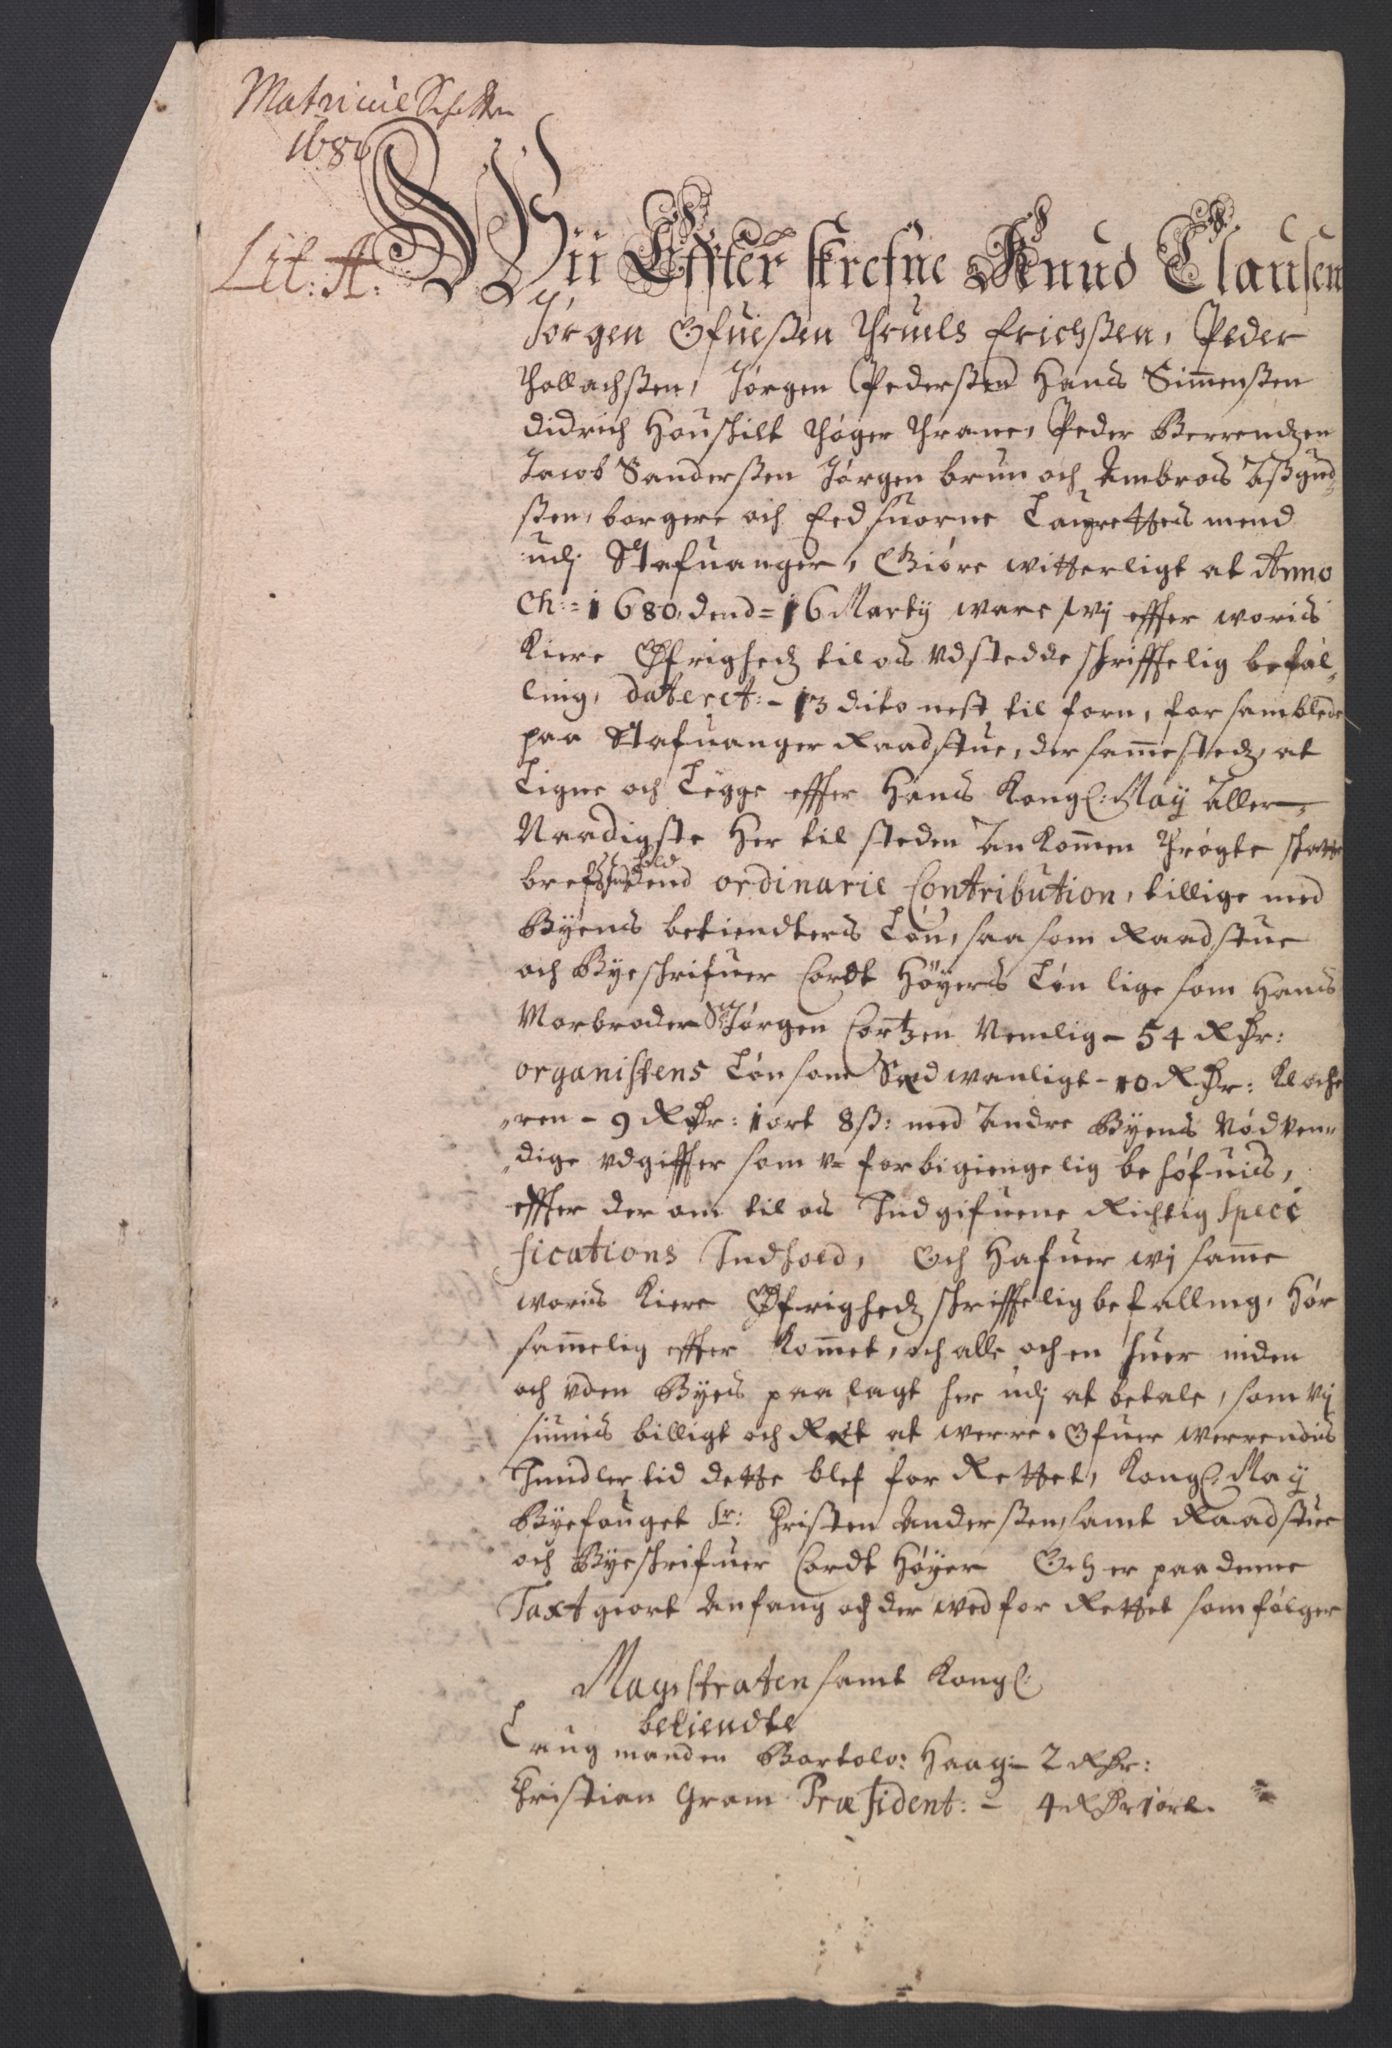 Matricul Schatten
1680
Lit: A:
Wii Effter skrefne Knud Clausen
Jørgen Ofueßen Thruels Erichßen, Peder
Thollachßen, Jørgen Pederßen Hans Simmenßen
Didrich Houschilt Thøger Thrane, Peder Berrendzen
Jacob Sanderßen Jørgen brun och Ambros Aßgud-
ßen, borgere och Eedsuorne Laugrettes mend
udj Stafuanger, Giøre witterligt at Anno
Ch:= 1680, dend= 16 Marty ware wj effter woris
Kiere Øfrighedz til os Vdstedde schrifftelig befal-
ling, dateret:- 13 dito nest til forn, forsamblede
paa Stafuanger Raadstue, der sammestedz, at
Ligne och Legge effter Hans Kongl: May Aller-
Naadigste Her til steden Ankommen Trøgte schatte
brefs Indhold dend ordinarie Contribution, tillige med
Byens betiendters Løn, saa som Raadstue
och Byeschrifuer Cordt Høyers Løn lige som Hans
Morbroder Sl Jørgen Cortzen Nemlig - 54 Rdr:
organistens Løn som Sædwanligt - 10 Rdr: Kloche
ren - 9 Rdr: 1 ort 8ß: med Andre Byens Nødven-
dige Vdgiffter som v= forbigiengelig behøfuis,
effter der om til os Indgifuene Richtig Speci
fications Indhold, Och Hafuer wj samme
woris Kiere Øfrighedz schrifftelig befalling, Hør
sammelig effter Kommet, och alle och en huer inden
och vden Byes paa lagt her udj at betale, som vij
siunis billigt och Ræt at werre. Ofuer werrendis
Imidler tid dette blef for Rettet, Kongl. May
Byefouget Sr: Christen Anderßen, samt Raadstue
och Byeschrifuer Cordt Høyer Och er paa denne
Taxt giort Anfang och der wed for Rettet som følger
Magistraten samt Kongl:
betiendte
Laugmanden Bartolo: Haag:- 2 Rdr:
Christian Gram Præsident: - 4 Rdr 1 ort.